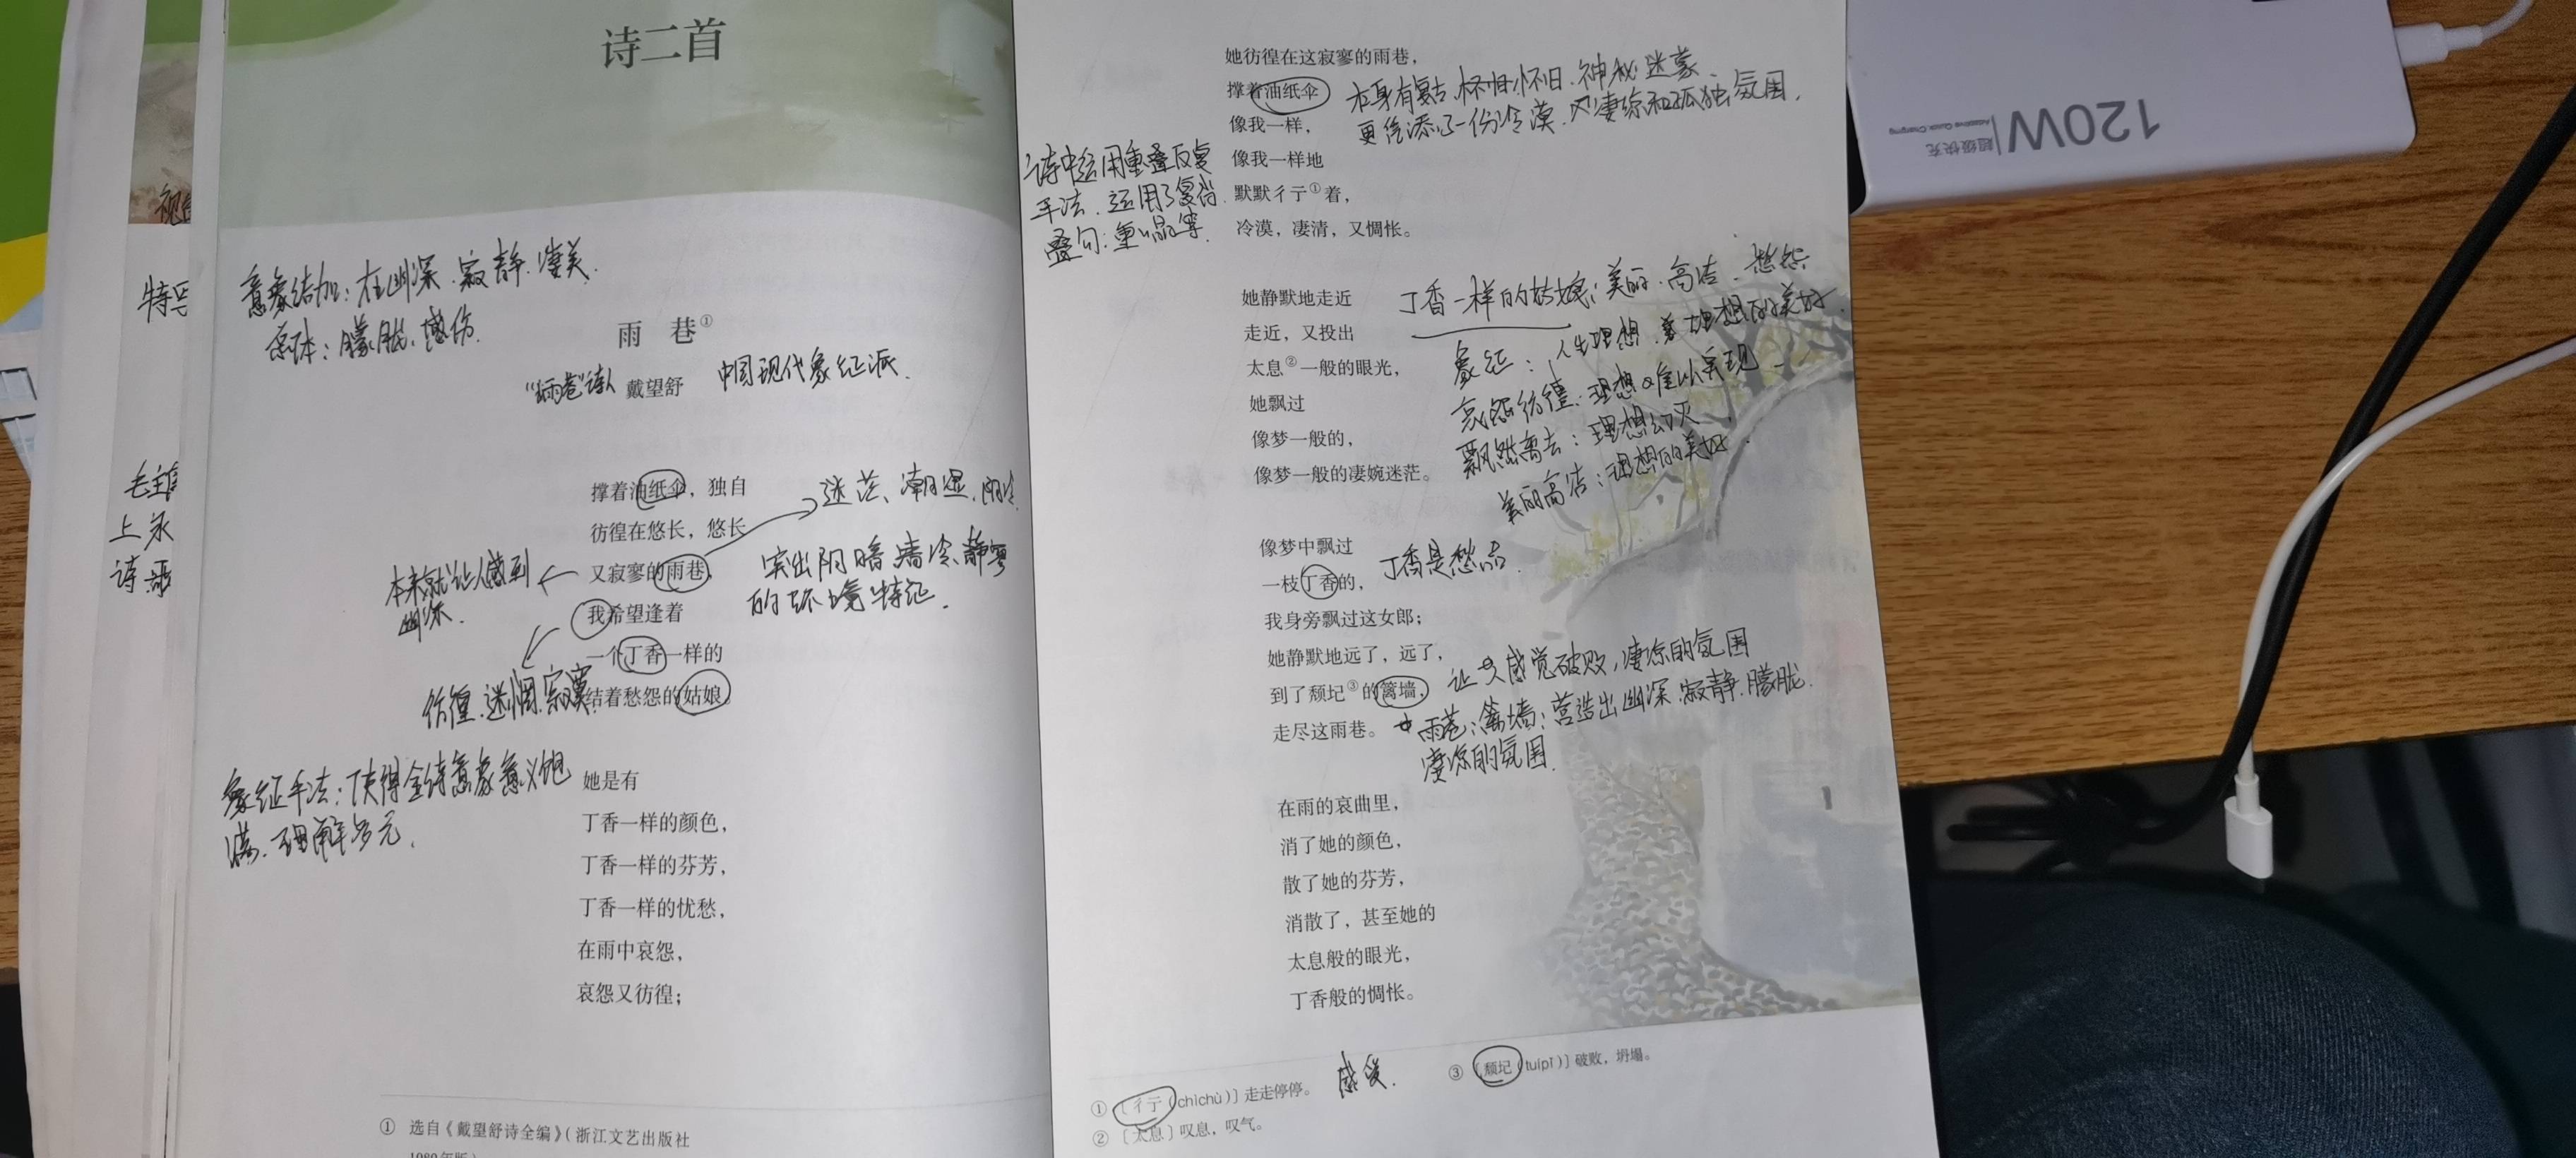 诗二首
视
特写
毛主席
上永
诗哥
意象结加：在幽深、寂静、凄美、
总体：朦胧、感伤
雨 巷①
“雨巷”诗人 戴望舒 中国现代象征派
撑着油纸伞，独自
彷徨在悠长，悠长
又寂寥的雨巷，
我希望逢着
一个丁香一样的
结着愁怨的姑娘。
迷茫、潮湿、阴冷
突出阴暗 凄冷、静寥
的环境特征
本来就让人感到
幽深
彷徨、迷惘、寂寞
象征手法：使得全诗意象意义饱
满、理解多元
她是有
丁香一样的颜色，
丁香一样的芬芳，
丁香一样的忧愁，
在雨中哀怨，
哀怨又彷徨；
① 选自《戴望舒诗全编》（浙江文艺出版社
1989年版）
她彷徨在这寂寥的雨巷，
撑着油纸伞
像我一样，
像我一样地
默默彳亍①着，
冷漠，凄清，又惆怅。
本身有复古、怀旧、神秘、迷蒙、
更给添了一份冷漠、凄凉和孤独氛围
诗中运用重叠反复
手法、运用了复沓
叠句；重唱等
她静默地走近
走近，又投出
太息②一般的眼光，
她飘过
像梦一般的，
像梦一般的凄婉迷茫。
丁香一样的姑娘：美丽、高洁、愁怨
象征：人生理想、美好理想的美好
哀怨彷徨：理想难以实现
飘然离去：理想幻灭
美丽高洁：理想的美好
像梦中飘过
一枝丁香的， 丁香是愁品
我身旁飘过这女郎；
她静默地远了，远了，
到了颓圮③的篱墙，
走尽这雨巷。
让人感觉破败，凄凉的氛围
雨巷；篱墙：营造出幽深、寂静、朦胧
凄凉的氛围
在雨的哀曲里，
消了她的颜色，
散了她的芬芳，
消散了，甚至她的
太息般的眼光，
丁香般的惆怅。
①〔彳亍（chìchù）〕走走停停。 感受
②〔太息〕叹息，叹气。
③〔颓圮（tuípǐ）〕破败，坍塌。
120W
超级快充